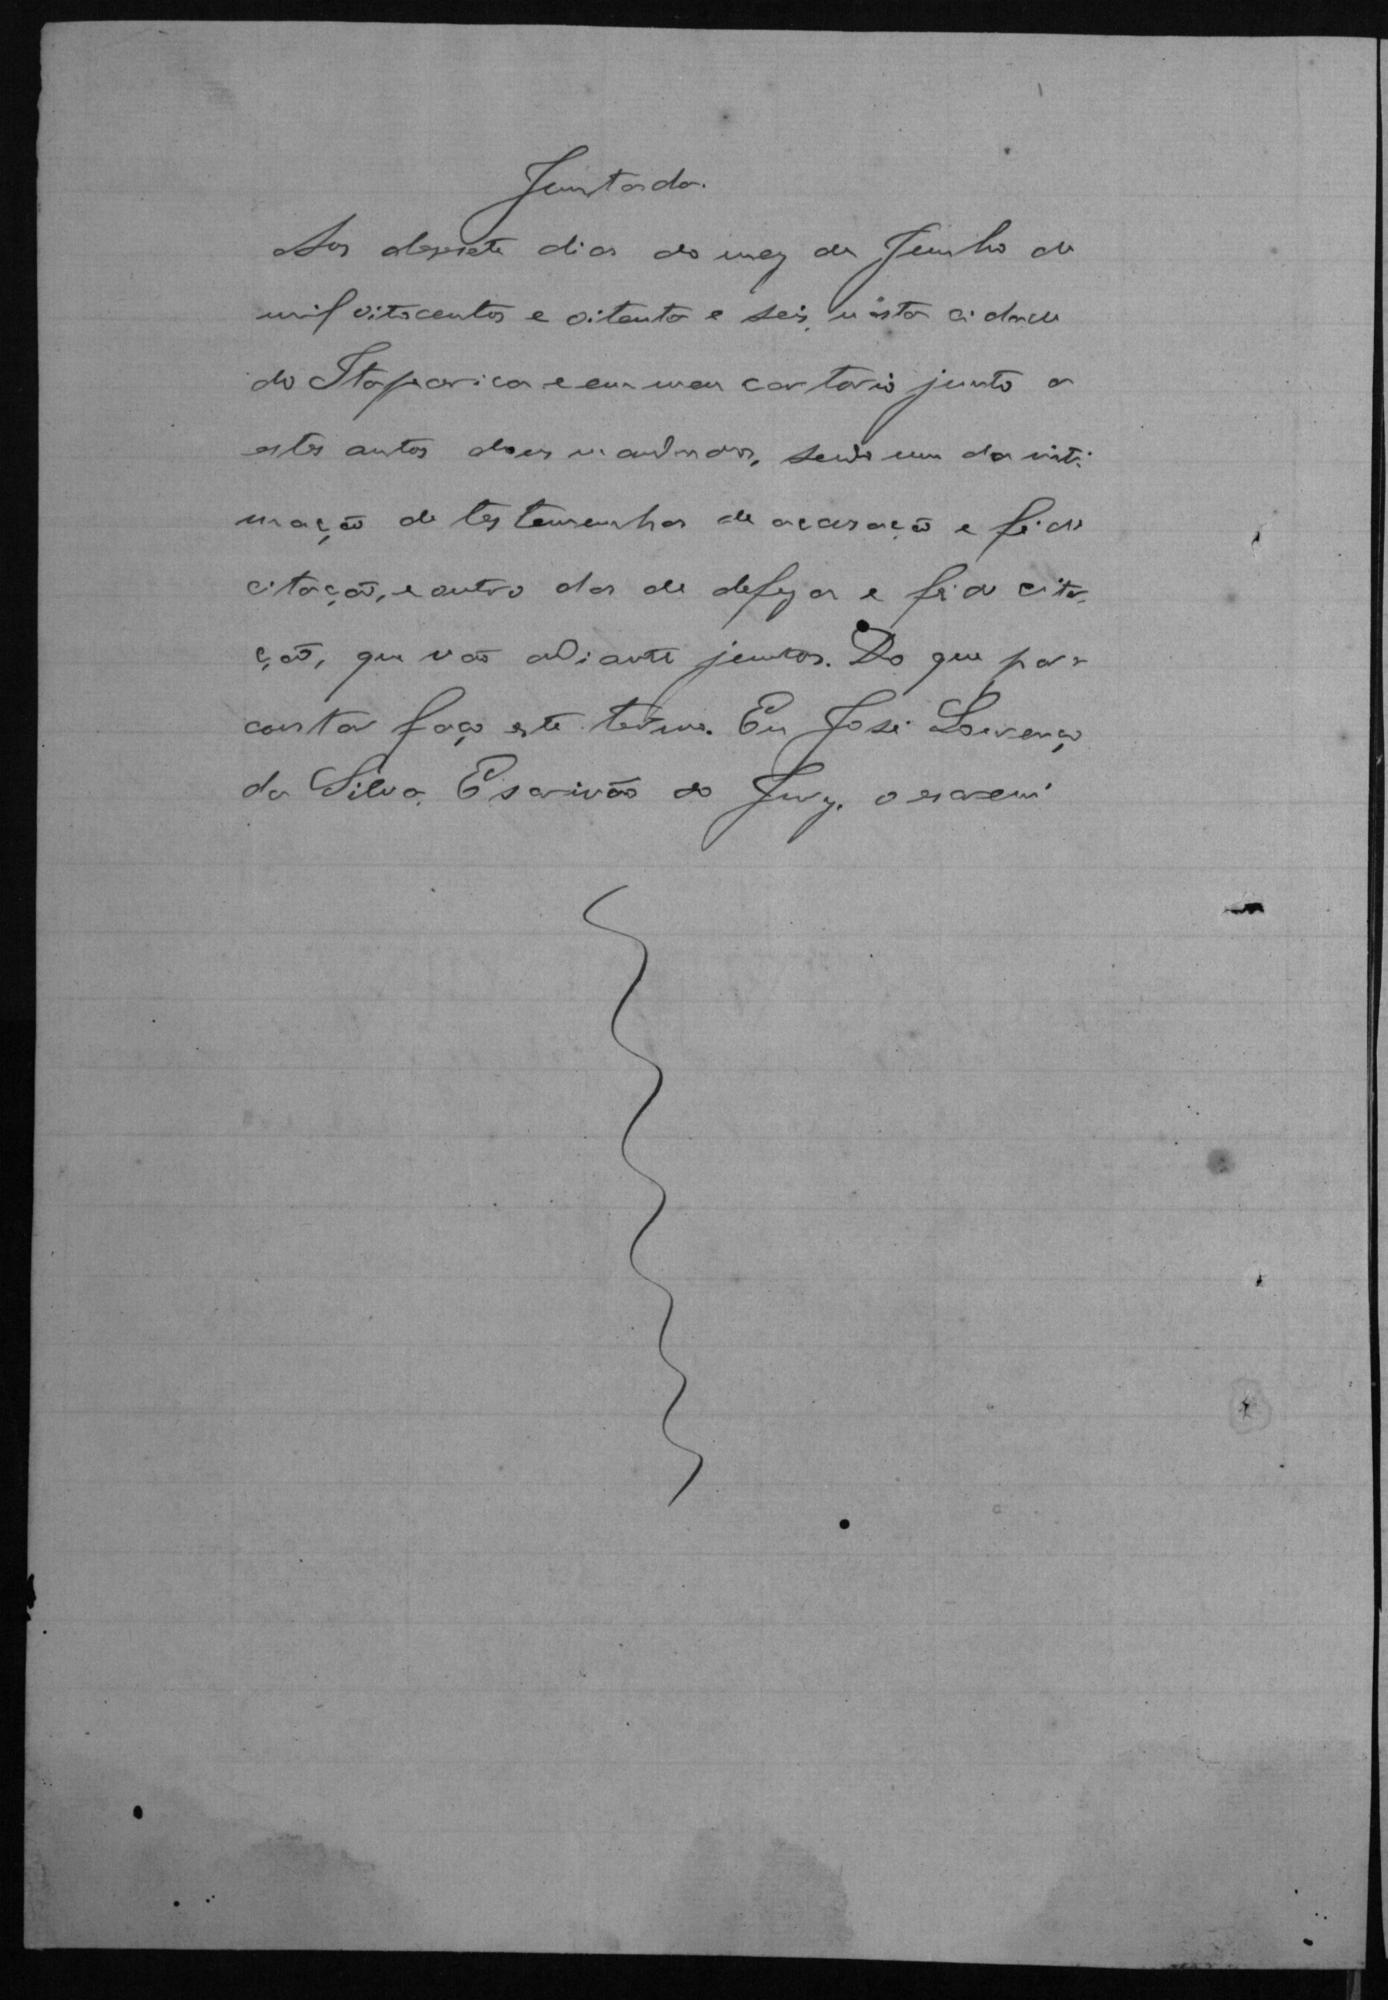 Juntada.
Aos desesete dias do mez de Junho de
mil oitocentos e oitenta e seis, nesta cidade
de Itaparica e em meu cartorio junto a
estes autos dous mandados, sendo um da inti-
mação de testemunhas de acusação e fé de
citação, e outro das de defeza e fé de cita-
ção, que vão adiante juntos. Do que para
constar faço este termo. Eu José Lourenço
da Silva, Escrivão do Jury, o escrevi